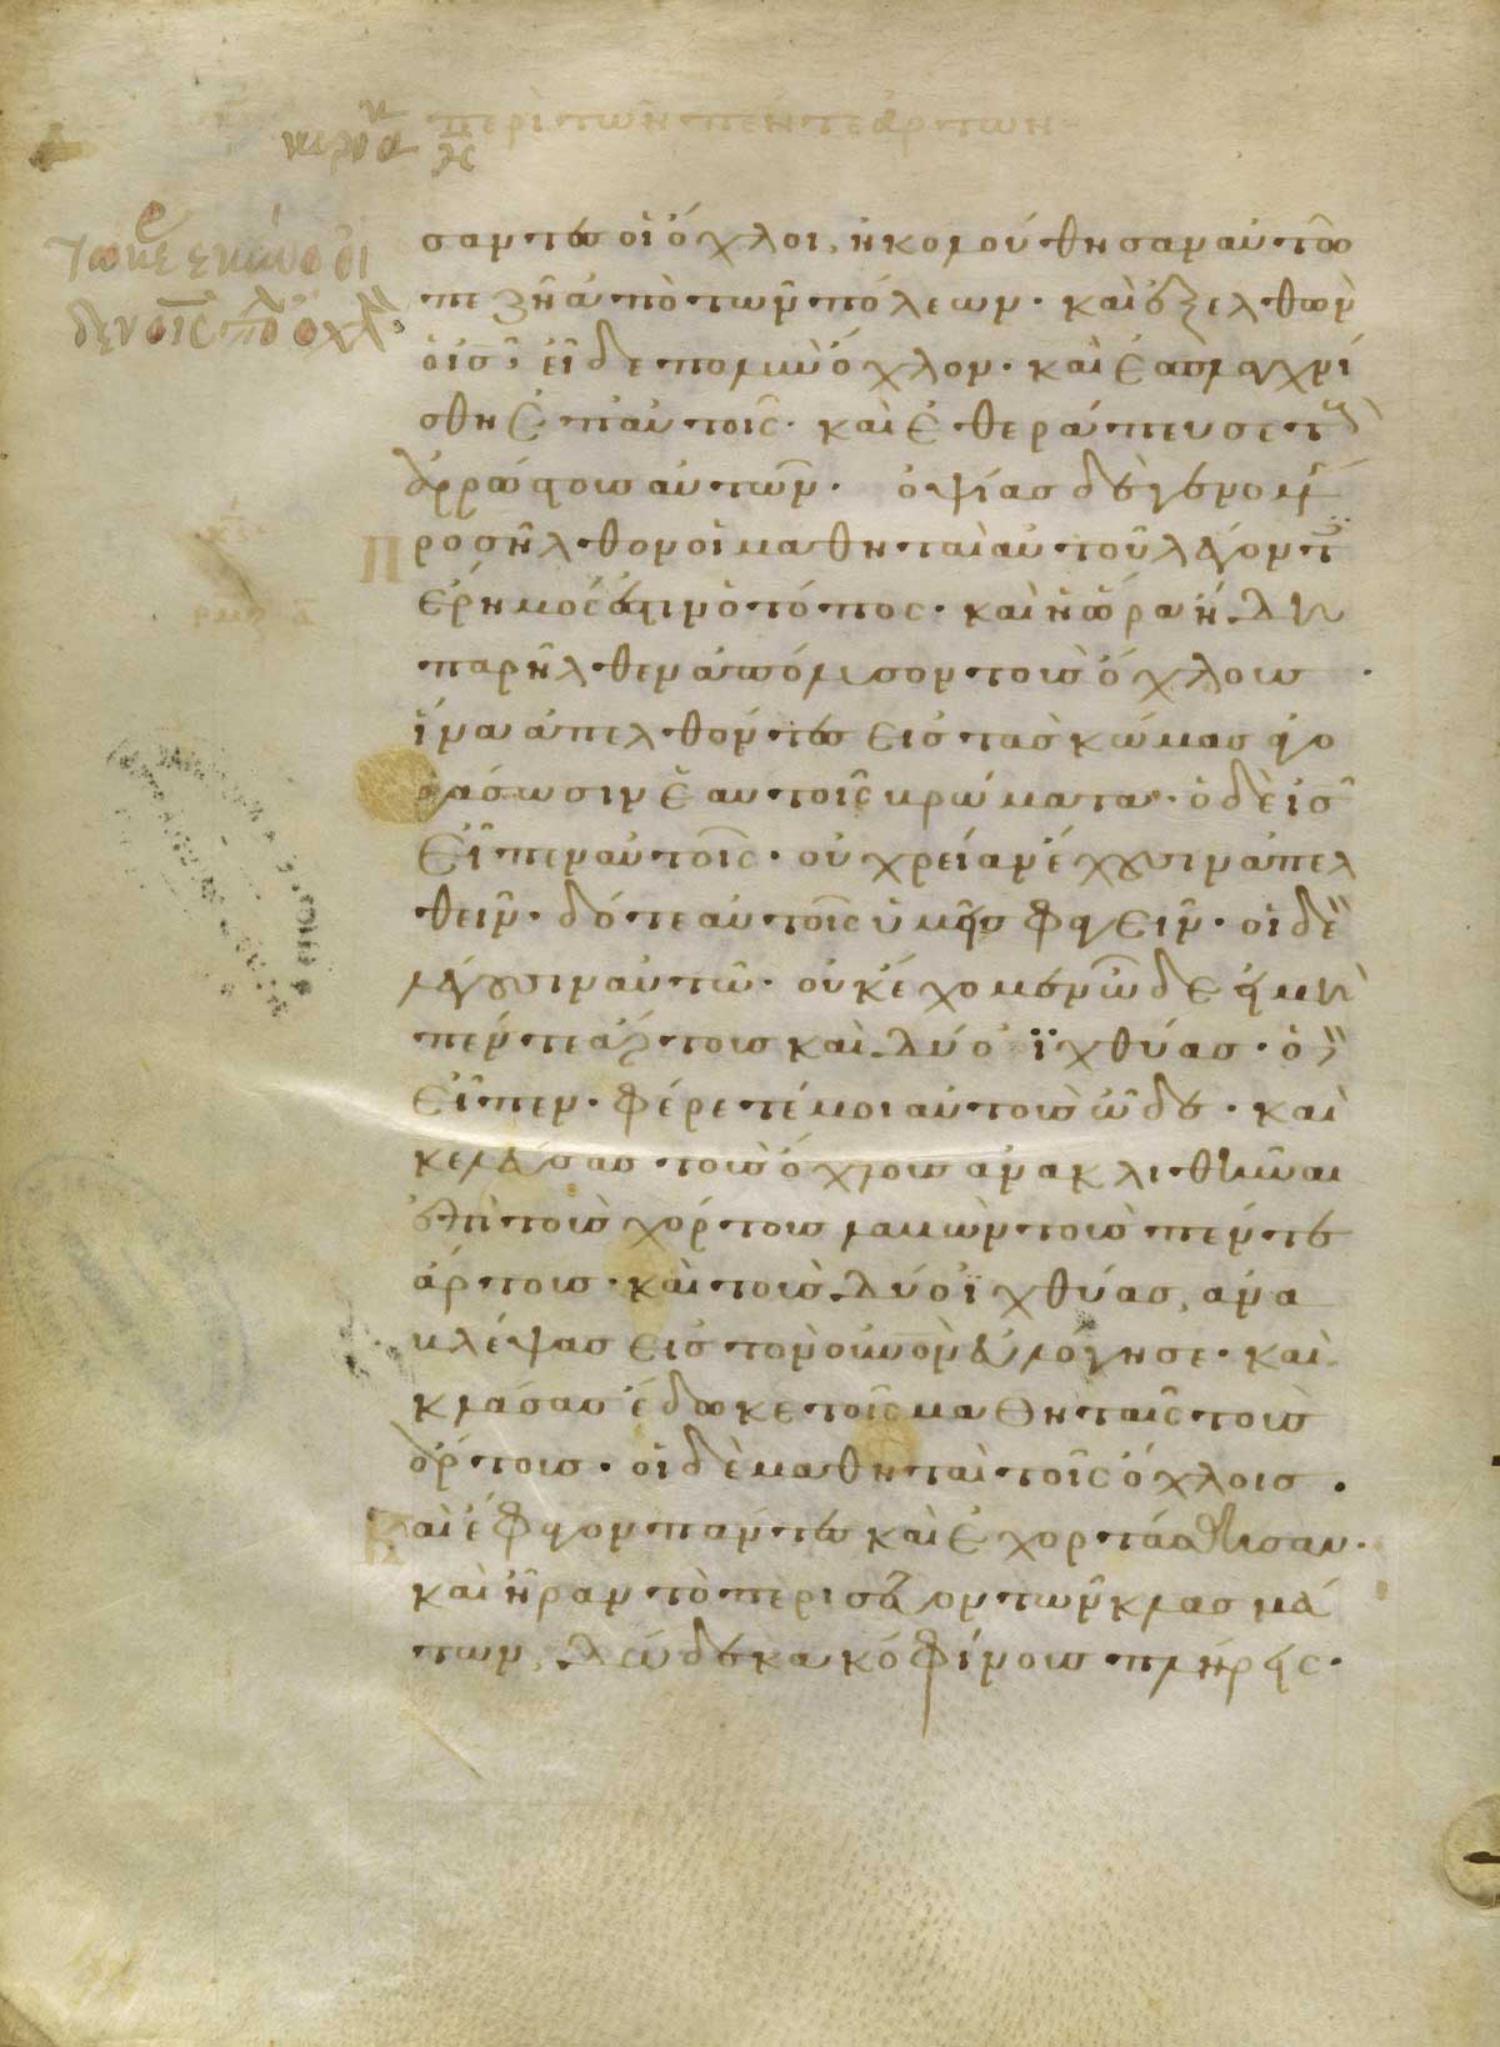 περὶ τῶν πέντε ἄρτων
κυρια
τῶ κε εκείνω οι
δεν ο ις πο οχλ
σαντες οἱ ὄχλοι, ἠκολούθησαν αὐτῶ
πεζῆ ἀπὸ τῶν πόλεων· καὶ ἐξελθὼν
ὁ ις, εἶδε πολὺν ὄχλον· καὶ ἐσπλαγχνί
σθη ἐπ αὐτοῖς· καὶ ἐθεράπευσε τ
ἀρρώστους αὐτῶν· ὀψίας δὲ γενομ
Προσῆλθον οἱ μαθηταὶ αὐτοῦ λέγοντ
ἔρημός ἐστιν ὁ τόπος· καὶ ἡ ὥρα ἤδη
παρῆλθεν ἀπόλυσον τοὺς ὄχλους
ἵνα ἀπελθόντες εἰς τὰς κώμας ἀγο
ράσωσιν ἑαυτοῖς βρώματα· ὁ δὲ ις
εἶπεν αὐτοῖς· οὐ χρείαν ἔχουσιν ἀπελ
θεῖν· δότε αὐτοῖς ὑμεῖς φαγεῖν· οἱ δὲ
λέγουσιν αὐτῶ· οὐκ ἔχομεν ὧδε εἰ μὴ
πέντε ἄρτους καὶ δύο ἰχθύας· ὁ δὲ
εἶπεν· φέρετέ μοι αὐτοὺς ὧδε· καὶ
κελεύσας τοὺς ὄχλους ἀνακλιθῆναι
ἐπὶ τοὺς χόρτους λαβὼν τοὺς πέντε
ἄρτους· καὶ τοὺς δύο ἰχθύας, ἀνα
βλέψας εἰς τὸν οὐνὸν εὐλόγησε· καὶ
κλάσας ἔδωκε τοῖς μαθηταῖς τοὺς
ἄρτους· οἱ δὲ μαθηταὶ τοῖς ὄχλοις·
Καὶ ἔφαγον πάντες καὶ ἐχορτάσθησαν·
καὶ ἦραν τὸ περισσεῦον τῶν κλασμά
των, δώδεκα κοφίνους πλήρεις·